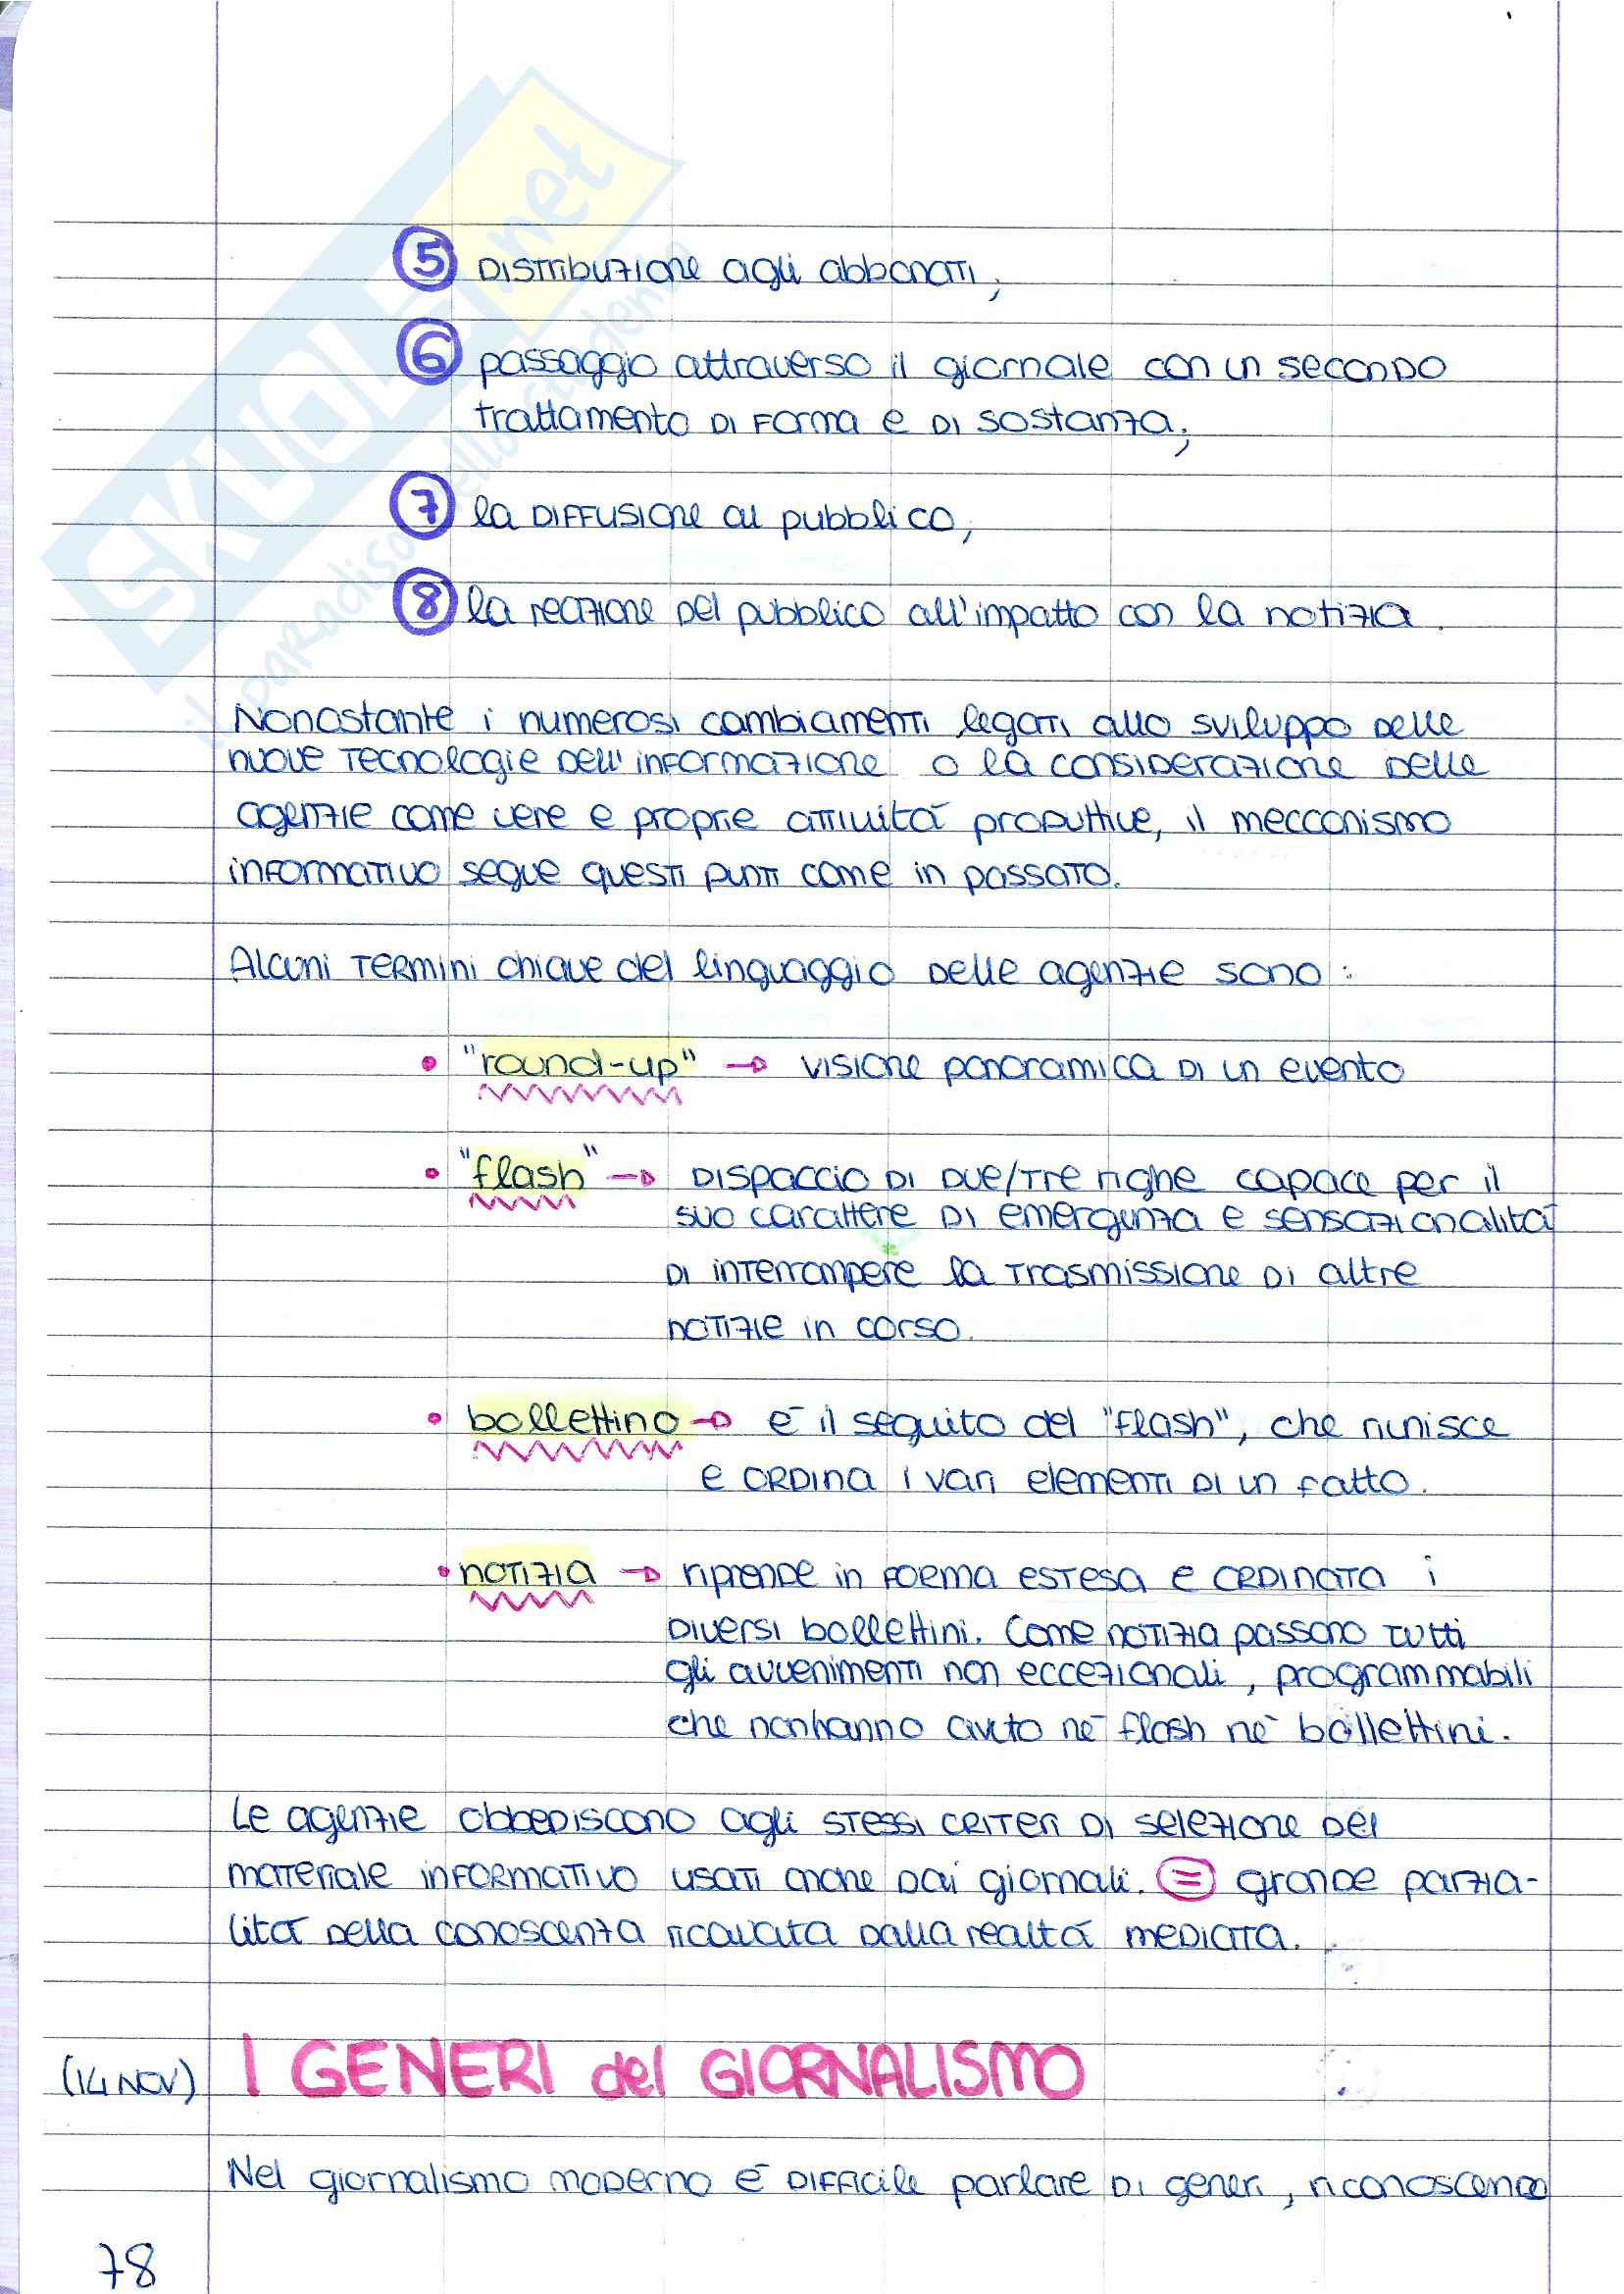 5 DISTRIBUZIONE agli abbonati;
6 passaggio attraverso il giornale con un secondo
trattamento di forma e di sostanza;
7 la DIFFUSIONE al pubblico;
8 la reazione del pubblico all'impatto con la notizia.
Nonostante i numerosi cambiamenti legati allo sviluppo delle
nuove tecnologie dell'informazione o la considerazione delle
agenzie come vere e proprie attività produttive, il meccanismo
informativo segue questi punti come in passato.
Alcuni termini chiave del linguaggio delle agenzie sono:
• "round-up" → visione panoramica di un evento
• "flash" → dispaccio di due/tre righe capace per il
suo carattere di emergenza e sensazionalità
di interrompere la trasmissione di altre
notizie in corso.
• bollettino → è il seguito del "flash", che riunisce
e ordina i vari elementi di un fatto.
• notizia → riprende in forma estesa e ordinata i
diversi bollettini. Come notizia passano tutti
gli avvenimenti non eccezionali, programmabili
che non hanno avuto nè flash nè bollettini.
Le agenzie obbediscono agli stessi criteri di selezione del
materiale informativo usati anche dai giornali. = grande parzia-
lità della conoscenza ricavata dalla realtà mediata.
(14 NOV) I GENERI del GIORNALISMO
Nel giornalismo moderno è difficile parlare di generi, riconoscendo
78
SKUOLA.net
il paradiso dello studente